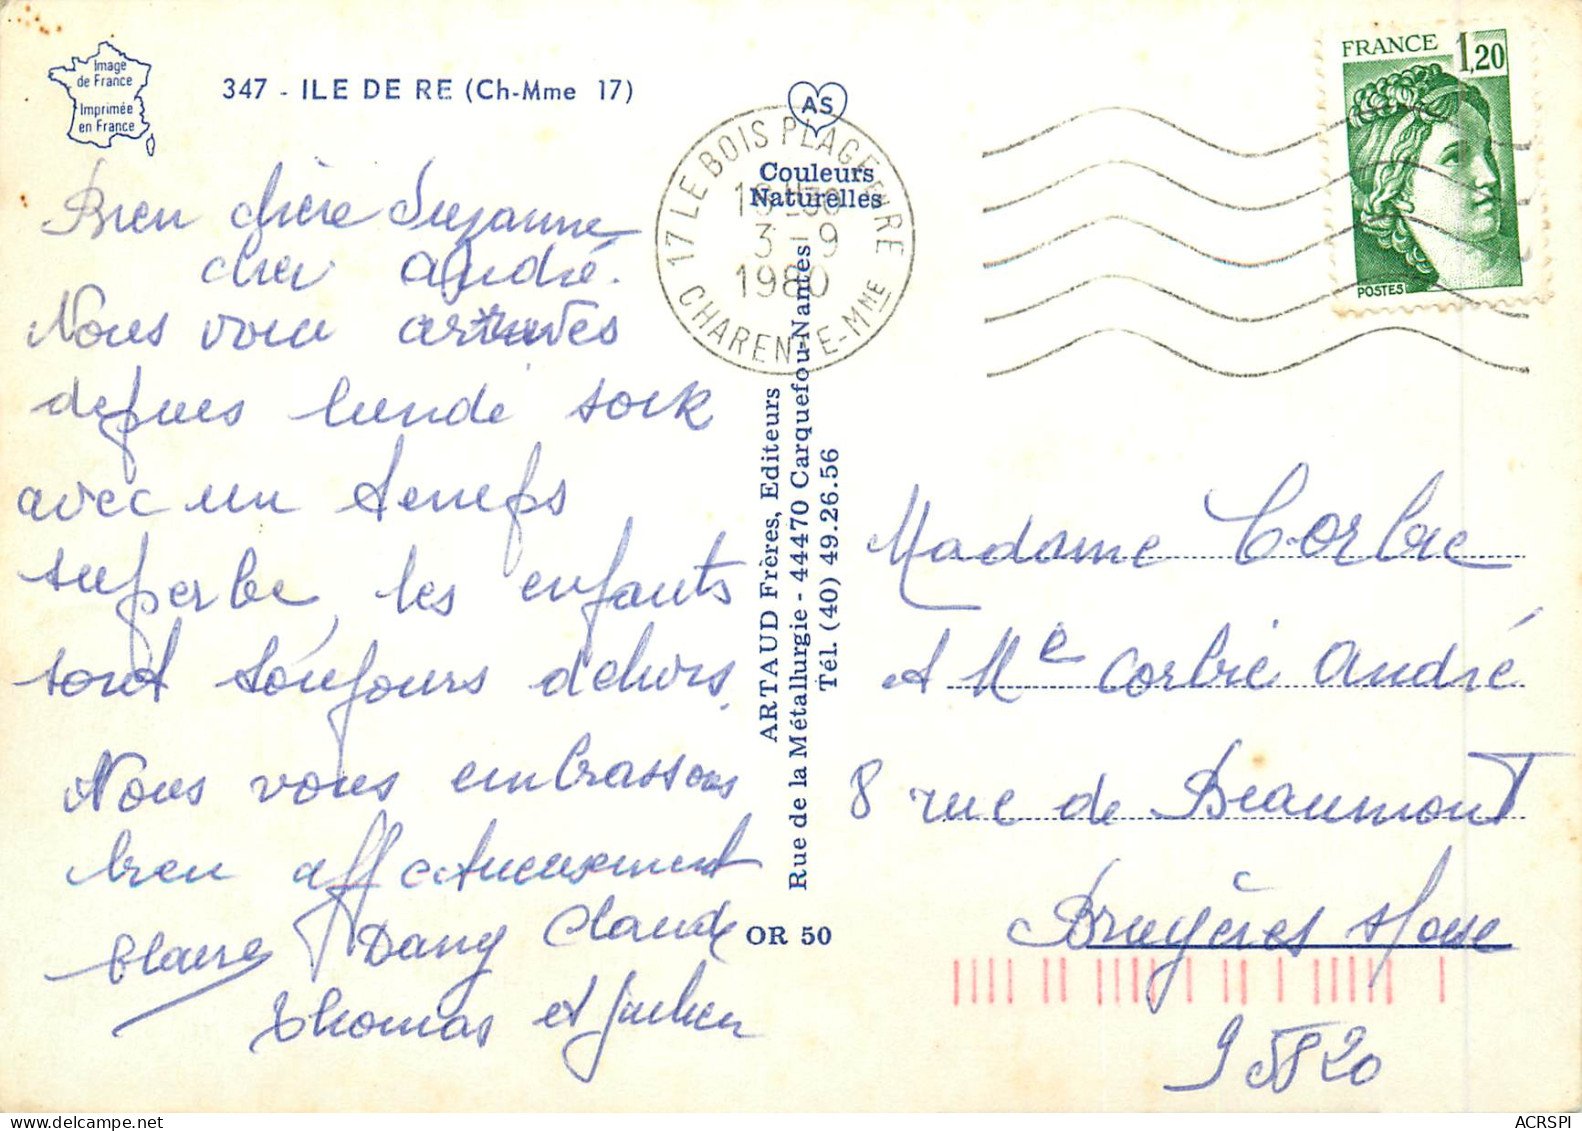 Image
de France
Imprimée
en France
347 - ILE DE RE (Ch-Mme 17)
Bien chère Suzanne
cher André.
Nous voici arrivés
depuis lundi soir
avec un temps
superbe, les enfants
sont toujours dehors.
Nous vous embrassons
bien affectueusement
Claire Dany Claude
Thomas et Julien
AS
Couleurs
Naturelles
17 LE BOIS PLAGE EN RE
3 - 9
1980
CHARENTE-MNE
ARTAUD Frères, Editeurs
Rue de la Métallurgie - 44470 Carquefou-Nantes
Tél. (40) 49.26.56
OR 50
FRANCE 1,20
POSTES
Madame Corbie
et Me Corbie André
8 rue de Beaumont
Bruyères s/Oise
95820
ACRSPI